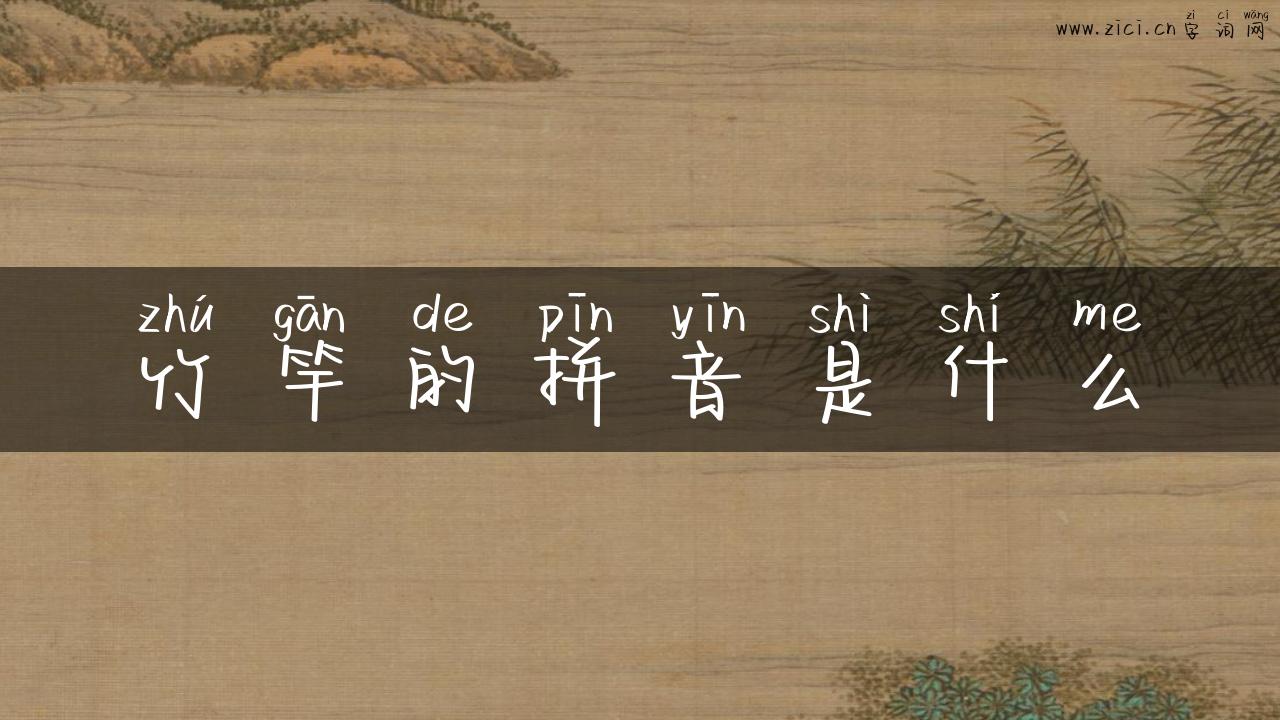 zì cí wǎng
www.zici.cn 字 词 网
zhú gān de pīn yīn shì shí me
竹 竿 的 拼 音 是 什 么